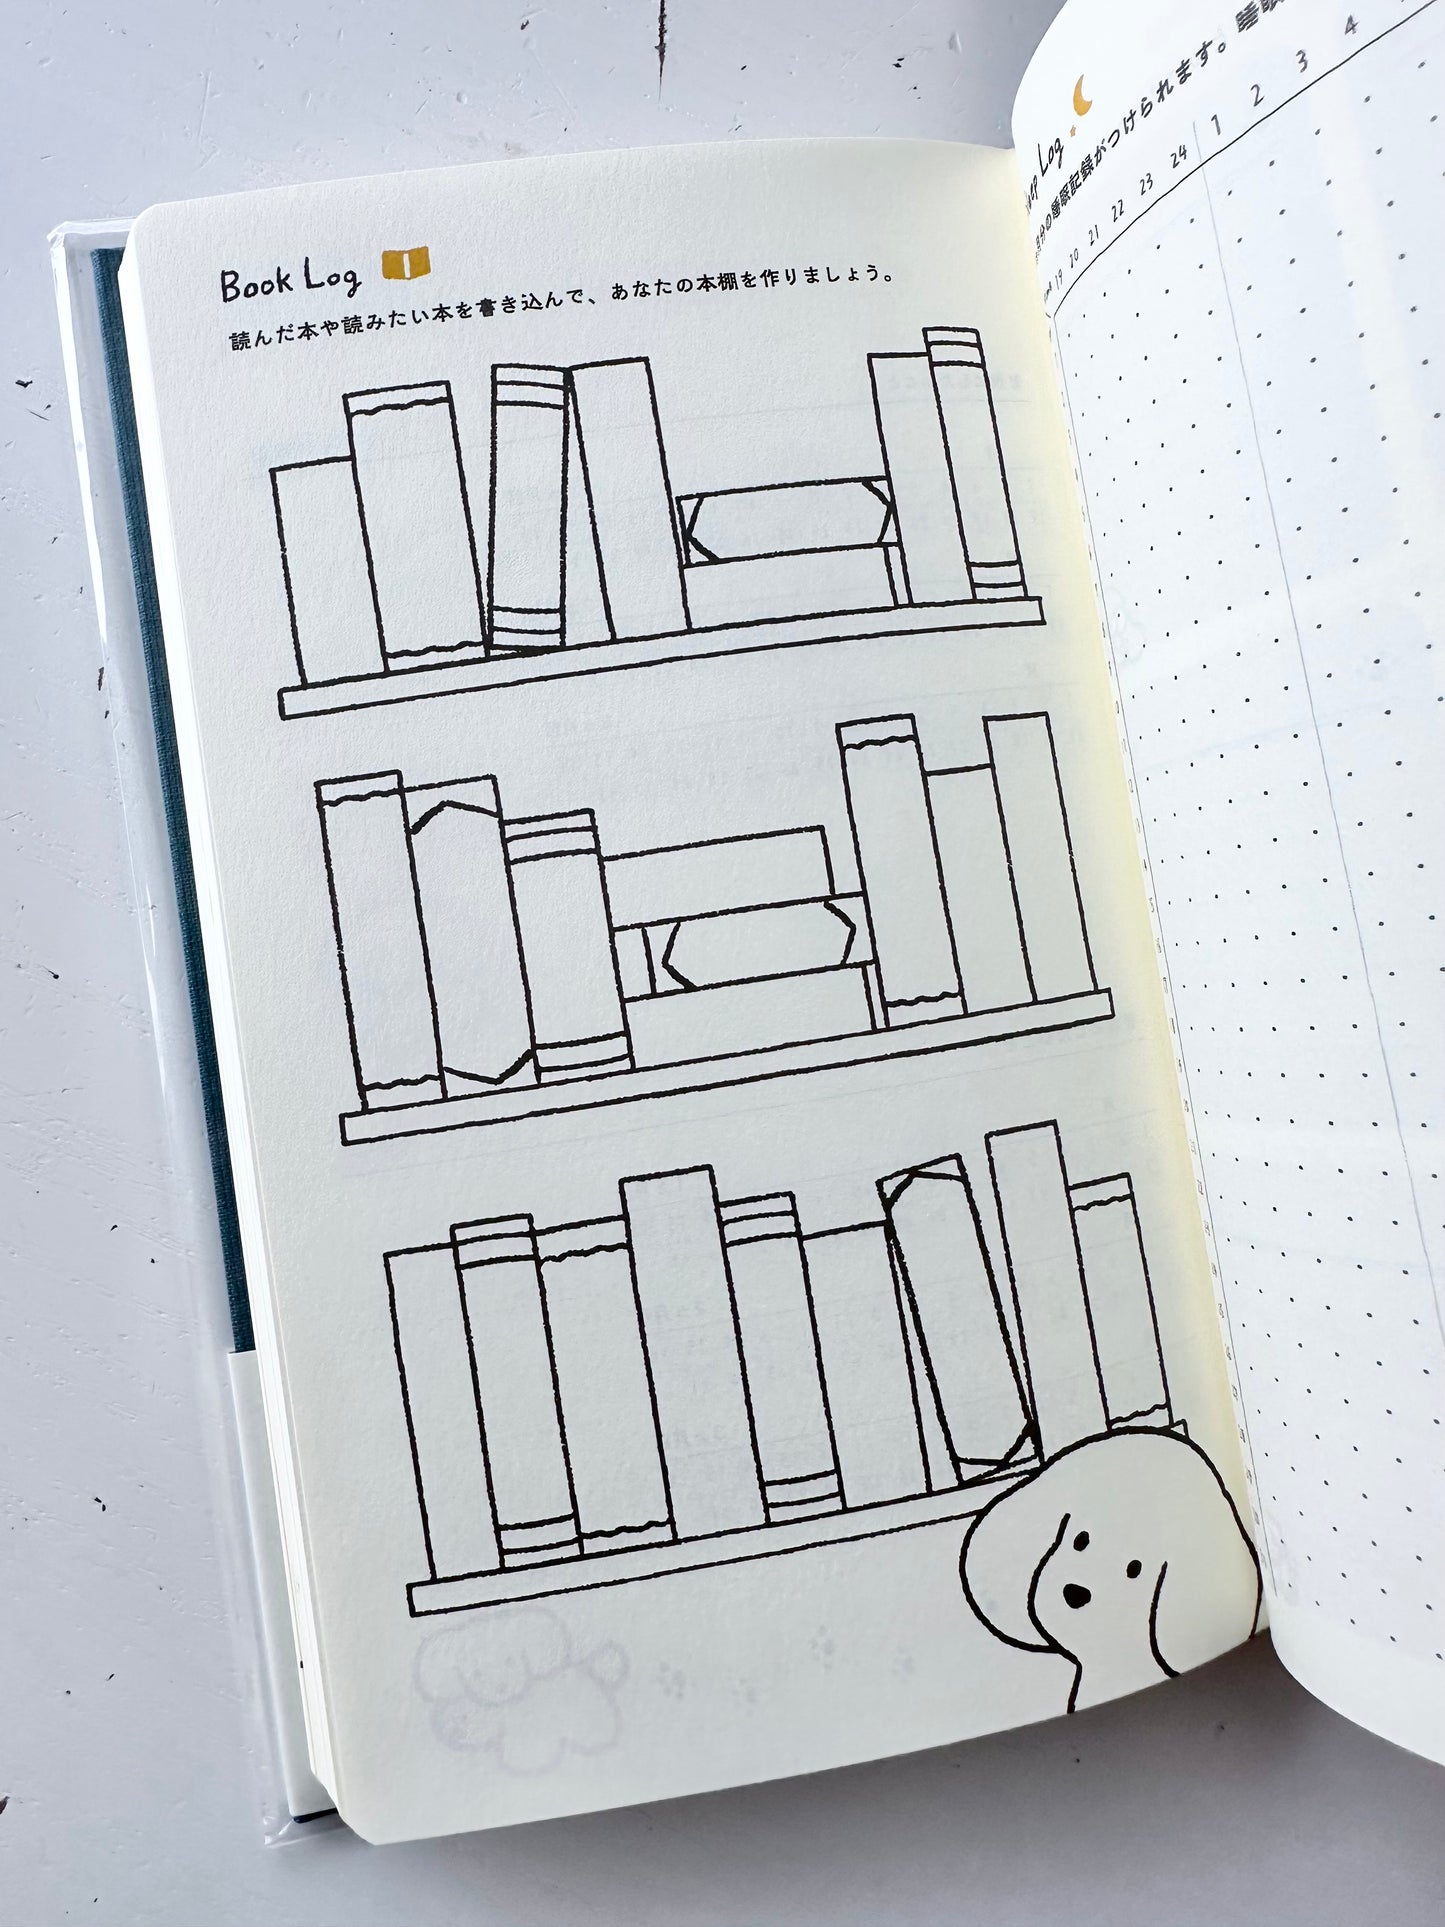 Book Log
読んだ本や読みたい本を書き込んで、あなたの本棚を作りましょう。
Log
睡眠記録がつけられます。睡眠
19 20 21 22 23 24 1 2 3 4